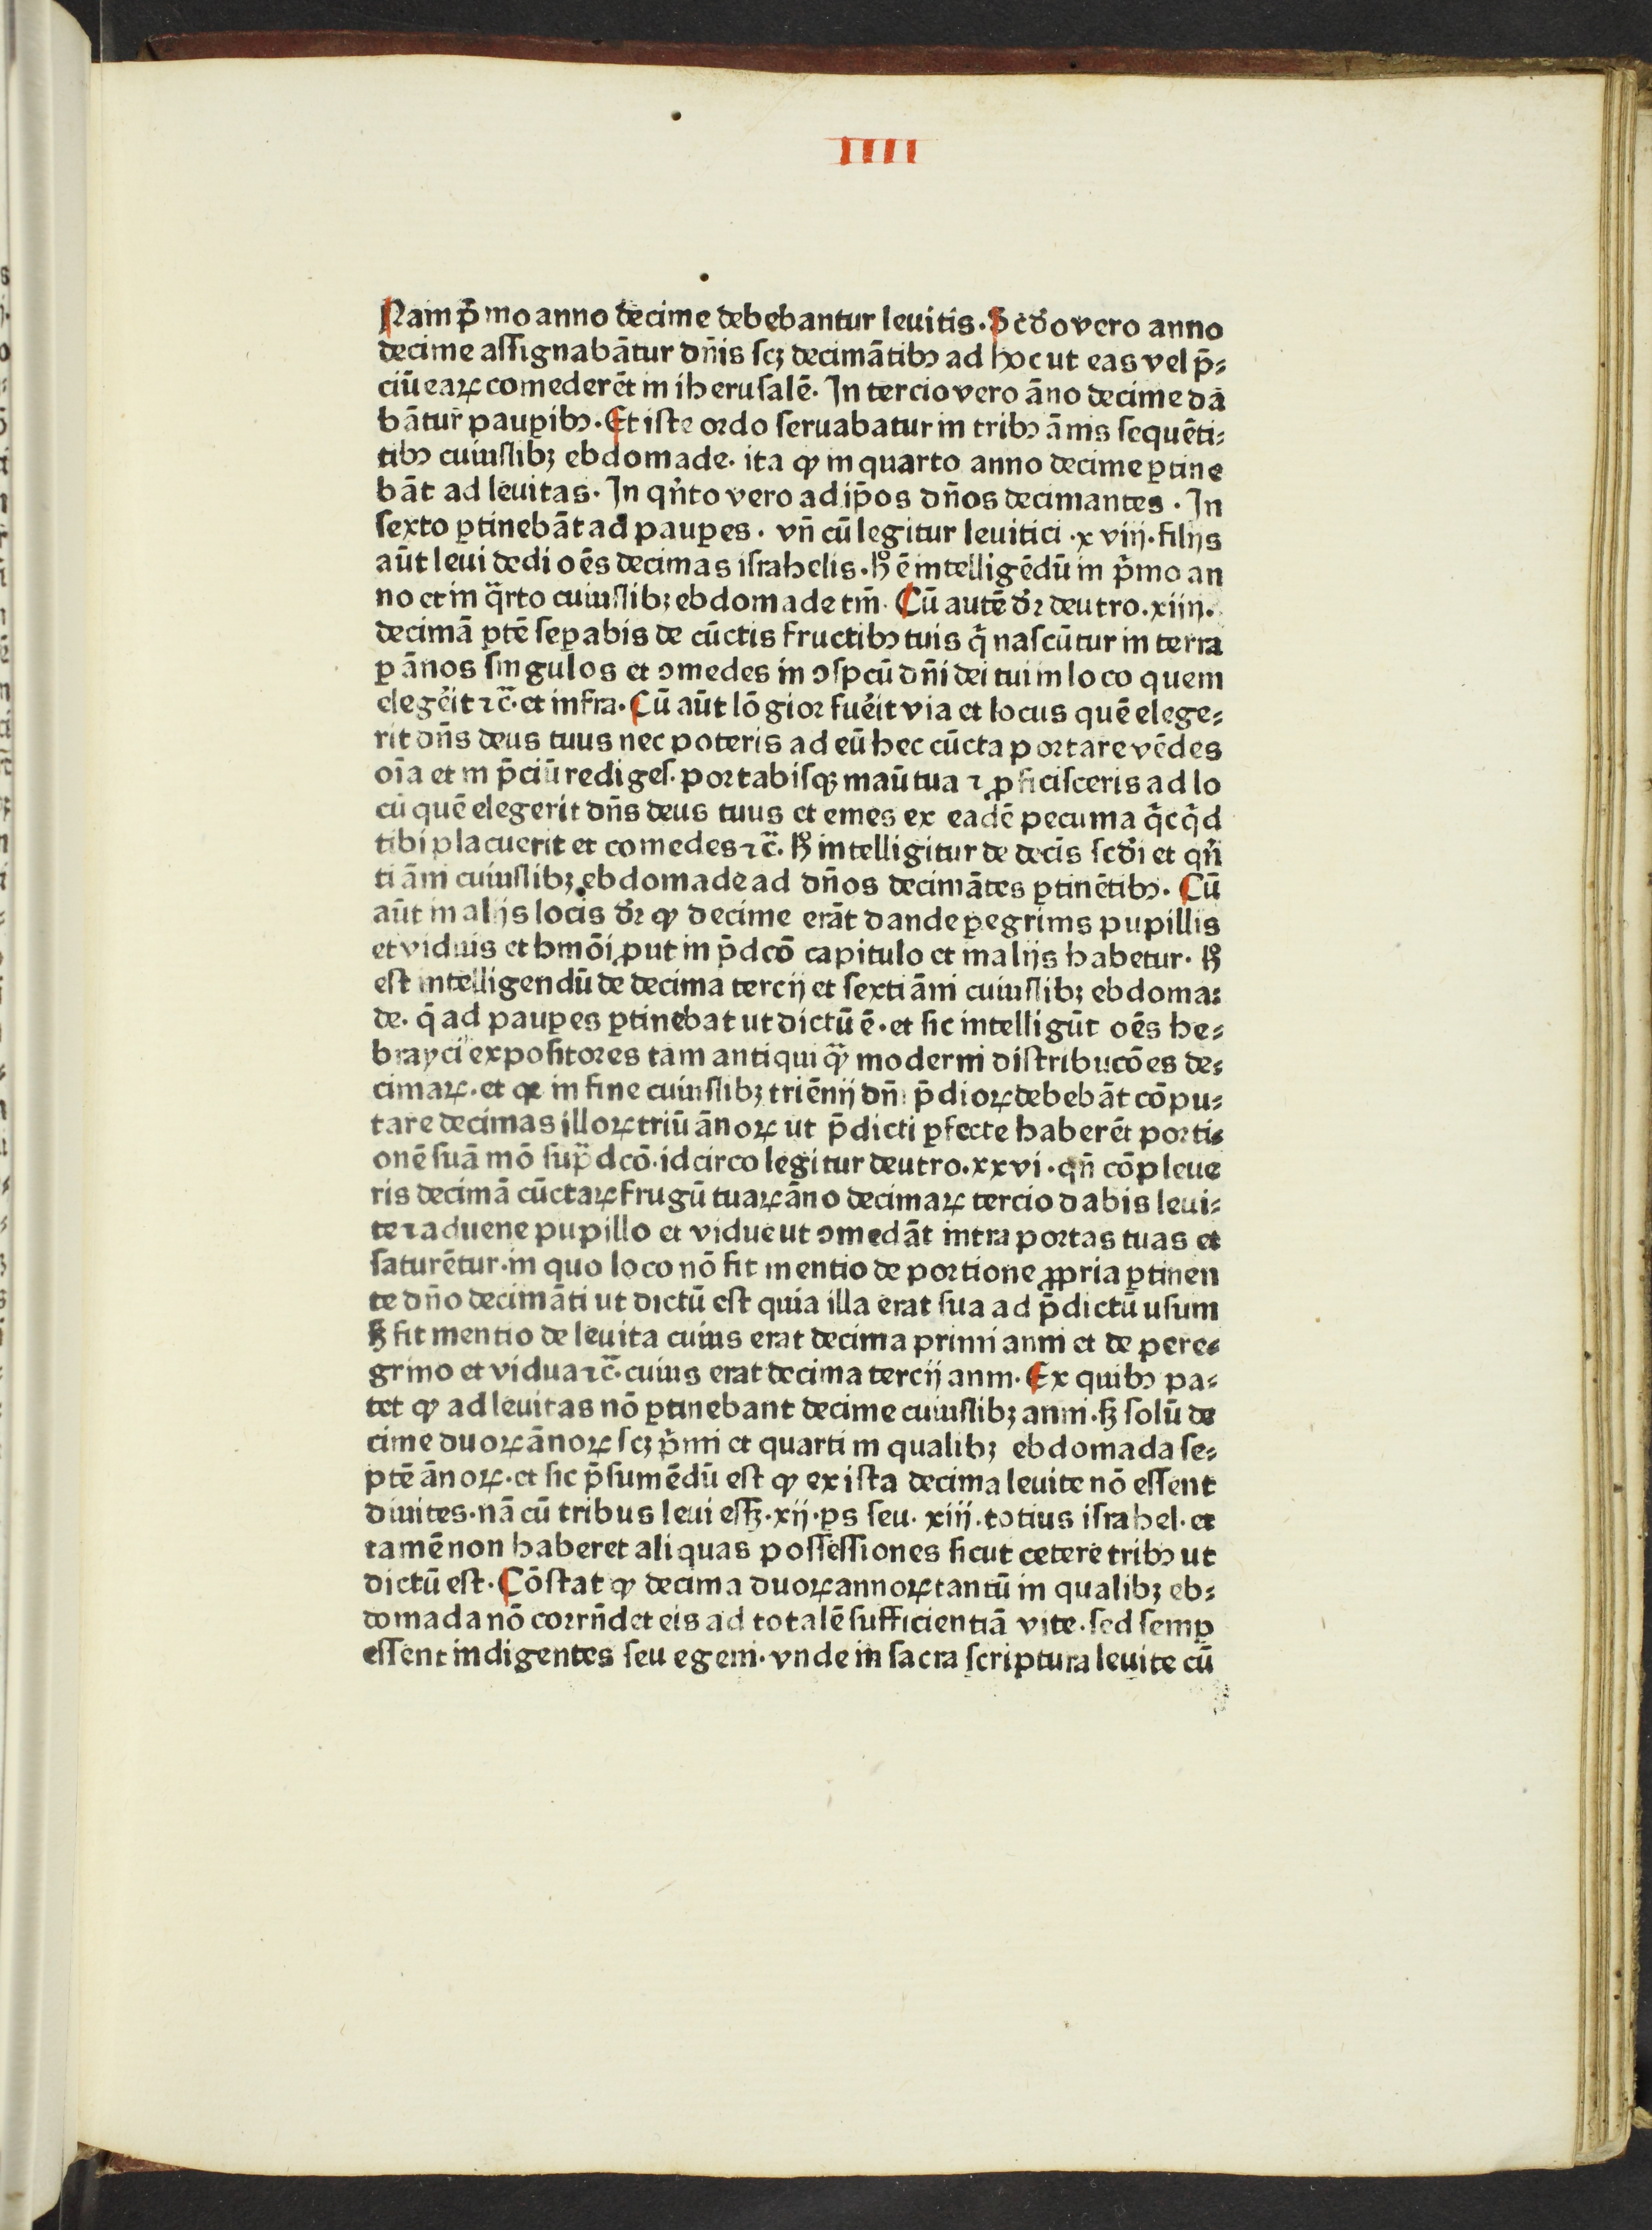 IIII
Nam p̄mo anno decime debebantur leuitis. Scd̄o vero anno
decime aſſignabātur dn̄is ſcꝫ decimātibꝰ ad hoc ut eas vel p̄⸗
ciū eaꝝ comederēt in iheruſalē. In tercio vero āno decime dā
bātur pauꝑibꝰ. Et iſte ordo ſeruabatur in tribꝰ ānis ſequēti⸗
tibꝰ cuiuſlibꝫ ebdomade. ita ꝙ in quarto anno decime ꝑtine
bāt ad leuitas. In qn̄to vero ad ip̄os dn̄os decimantes. In
ſexto ꝑtinebāt ad pauꝑes. vn̄ cū legitur leuitici .xviij. filijs
aūt leui dedi oēs decimas iſrahelis. hͦ ē intelligēdū in p̄mo an
no et in q̄rto cuiuſlibꝫ ebdomade tm̄. Cū autē dr̄ deutro. xiiij.
decimā ꝑtē ſeꝑabis de cūctis fructibꝰ tuis q̄ naſcūtur in terra
ꝑ ānos ſingulos et ↄmedes in ↄſpcū dn̄i dei tui in loco quem
elegēit ⁊c̄. et infra. Cū aūt lōgior fuēit via et locus quē elege⸗
rit dn̄s deus tuus nec poteris ad eū hec cūcta portare vēdes
oīa et in p̄ciū rediges. portabiſqꝫ manū tua ⁊ ꝓficiſceris ad lo
cū quē elegerit dn̄s deus tuus et emes ex eadē pecunia q̄cq̄d
tibi placuerit et comedes ⁊c̄. hͦ intelligitur de decis ſcd̄i et qn̄
ti āni cuiuſlibꝫ ebdomade ad dn̄os decimātes ꝑtinētibꝰ. Cū
aūt in alijs locis dr̄ ꝙ decime erāt dande ꝑegrinis pupillis
et viduis et hmōi ꝓut in p̄dcō capitulo et in alijs habetur. hͦ
eſt intelligendū de decima tercij et ſexti āni cuiuſlibꝫ ebdoma⸗
de. q̄ ad pauꝑes ꝑtinebat ut dictū ē. et ſic intelligūt oēs he⸗
brayci expoſitores tam antiqui q̄ moderni diſtribucōes de⸗
cimaꝝ. et ꝙ in fine cuiuſlibꝫ triēnij dn̄i p̄dioꝝ debebāt cōpu⸗
tare decimas illoꝝ triū ānoꝝ ut p̄dicti ꝑfecte haberēt porti⸗
onē ſuā mō ſup̄dcō. idcirco legitur deutro. xxvi. qn̄ cōpleue
ris decimā cūctaꝝ frugū tuaꝝ āno decimaꝝ tercio dabis leui⸗
te ⁊ aduene pupillo et vidue ut ↄmedāt intra portas tuas et
ſaturētur. in quo loco nō fit mentio de portione ꝓpria ꝑtinen
te dn̄o decimāti ut dictū eſt quia illa erat ſua ad p̄dictū uſum
ſꝫ fit mentio de leuita cuius erat decima primi anni et de pere⸗
grino et vidua ⁊c̄. cuius erat decima tercij anni. Ex quibꝰ pa⸗
tet ꝙ ad leuitas nō ꝑtinebant decime cuiuſlibꝫ anni. ſꝫ ſolū de
cime duoꝝ ānoꝝ ſcꝫ p̄mi et quarti in qualibꝫ ebdomada ſe⸗
ptē ānoꝝ. et ſic p̄ſumēdū eſt ꝙ ex iſta decima leuite nō eſſent
diuites. nā cū tribus leui eſſꝫ .xij. ꝑs ſeu. xiij. totius iſrahel. et
tamē non haberet aliquas poſſeſſiones ſicut cetere tribꝰ ut
dictū eſt. Cōſtat ꝙ decima duoꝝ annoꝝ tantū in qualibꝫ eb⸗
domada nō corrn̄det eis ad totalē ſufficientiā vite. ſed ſemꝑ
eſſent indigentes ſeu egeni. vnde in ſacra ſcriptura leuite cū